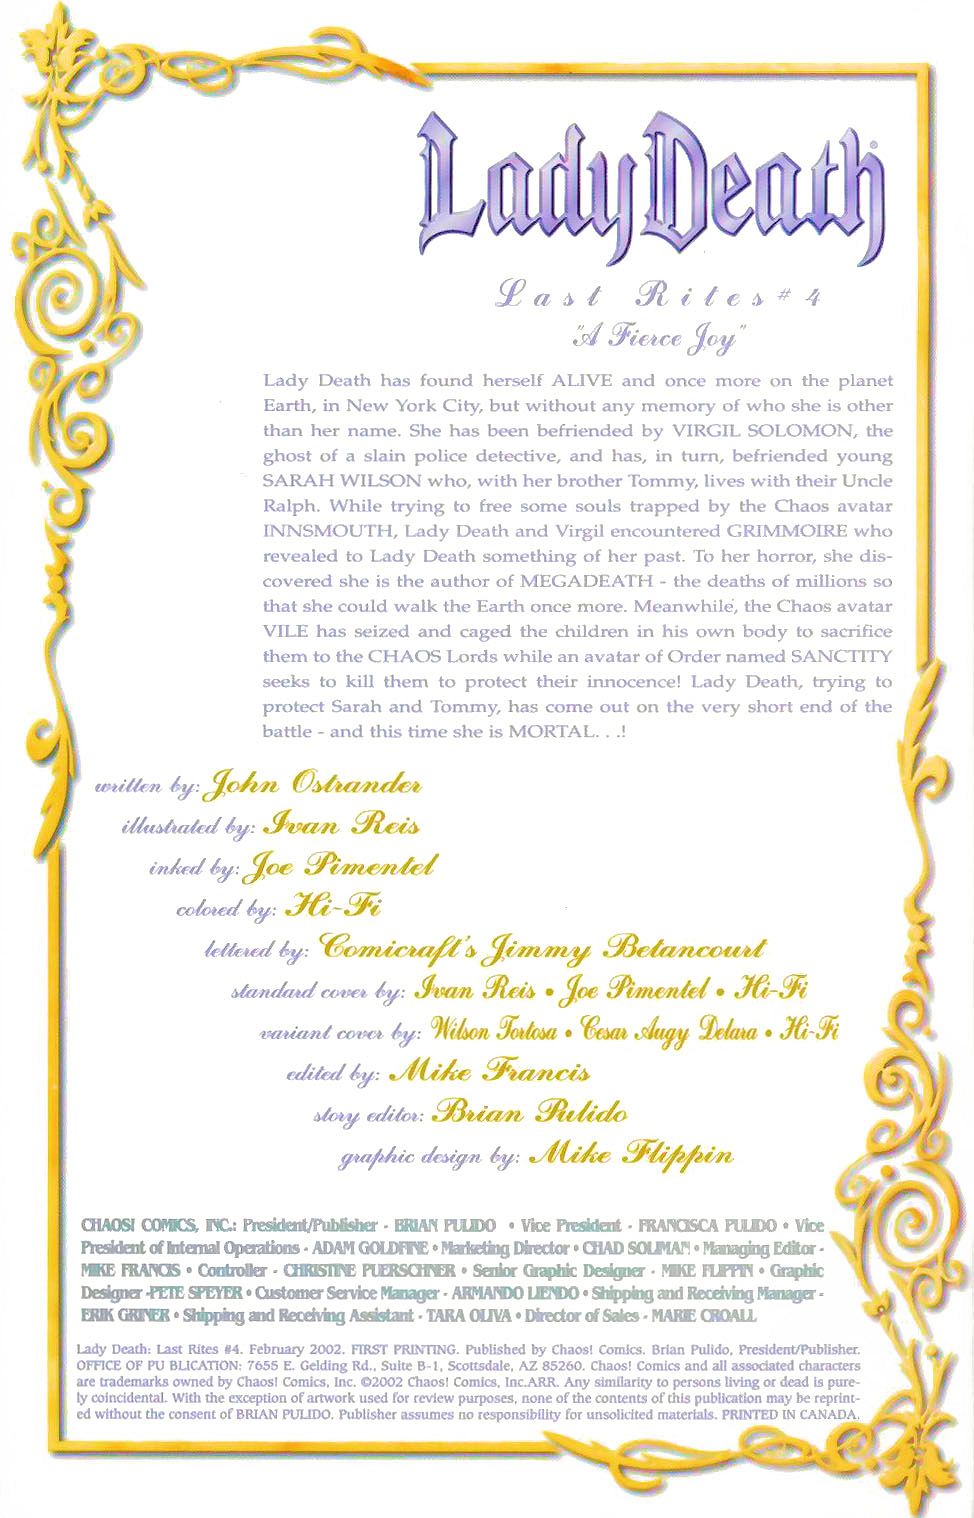 Lady Death®
Last Rites # 4
"A Fierce Joy"
Lady Death has found herself ALIVE and once more on the planet
Earth, in New York City, but without any memory of who she is other
than her name. She has been befriended by VIRGIL SOLOMON, the
ghost of a slain police detective, and has, in turn, befriended young
SARAH WILSON who, with her brother Tommy, lives with their Uncle
Ralph. While trying to free some souls trapped by the Chaos avatar
INNSMOUTH, Lady Death and Virgil encountered GRIMMOIRE who
revealed to Lady Death something of her past. To her horror, she dis-
covered she is the author of MEGADEATH - the deaths of millions so
that she could walk the Earth once more. Meanwhile, the Chaos avatar
VILE has seized and caged the children in his own body to sacrifice
them to the CHAOS Lords while an avatar of Order named SANCTITY
seeks to kill them to protect their innocence! Lady Death, trying to
protect Sarah and Tommy, has come out on the very short end of the
battle - and this time she is MORTAL. . .!
written by: John Ostrander
illustrated by: Ivan Reis
inked by: Joe Pimentel
colored by: Hi-Fi
lettered by: Comicraft's Jimmy Betancourt
standard cover by: Ivan Reis • Joe Pimentel • Hi-Fi
variant cover by: Wilson Tortosa • Cesar Augy Delara • Hi-Fi
edited by: Mike Francis
story editor: Brian Pulido
graphic design by: Mike Flippin
CHAOS! COMICS, INC.: President/Publisher - BRIAN PULIDO • Vice President - FRANCISCA PULIDO • Vice
President of Internal Operations - ADAM GOLDFINE • Marketing Director • CHAD SOLIMAN • Managing Editor -
MIKE FRANCIS • Controller - CHRISTINE PUERSCHNER • Senior Graphic Designer - MIKE FLIPPIN • Graphic
Designer -PETE SPEYER • Customer Service Manager - ARMANDO LIENDO • Shipping and Receiving Manager -
ERIK GRINER • Shipping and Receiving Assistant - TARA OLIVA • Director of Sales - MARIE CROALL
Lady Death: Last Rites #4. February 2002. FIRST PRINTING. Published by Chaos! Comics. Brian Pulido, President/Publisher.
OFFICE OF PU BLICATION: 7655 E. Gelding Rd., Suite B-1, Scottsdale, AZ 85260. Chaos! Comics and all associated characters
are trademarks owned by Chaos! Comics, Inc. ©2002 Chaos! Comics, Inc.ARR. Any similarity to persons living or dead is pure-
ly coincidental. With the exception of artwork used for review purposes, none of the contents of this publication may be reprint-
ed without the consent of BRIAN PULIDO. Publisher assumes no responsibility for unsolicited materials. PRINTED IN CANADA.